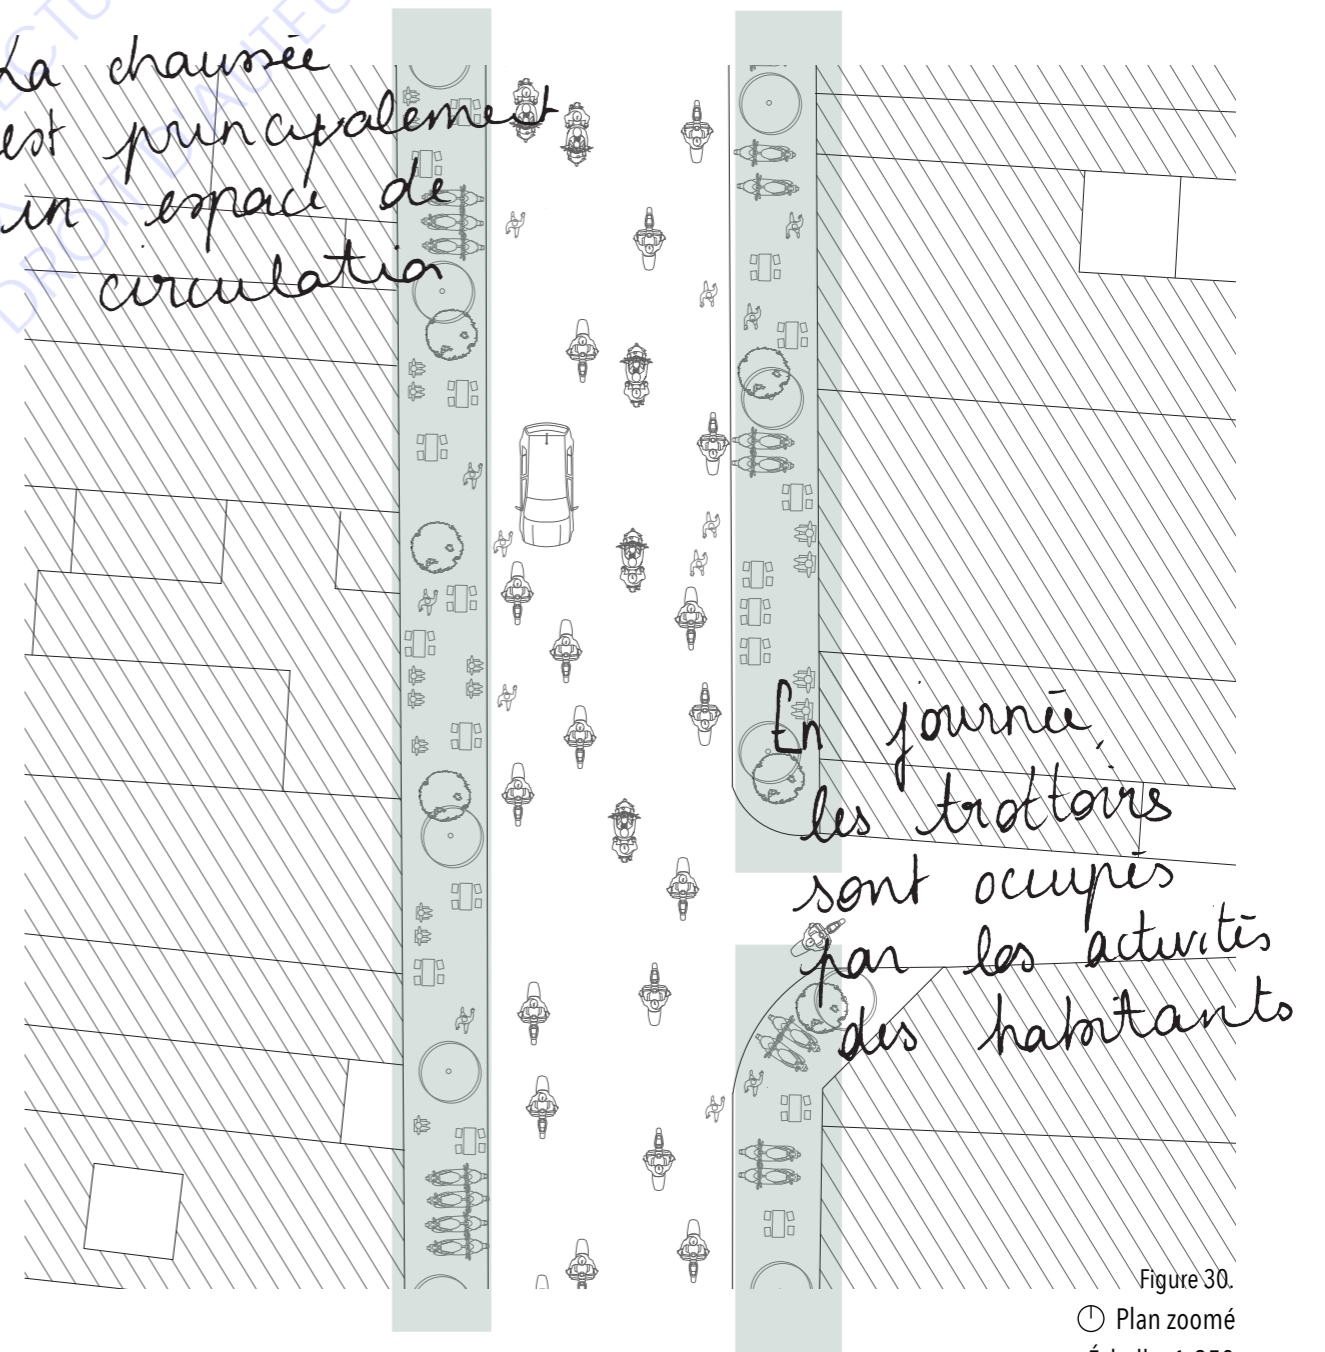 La chaussée
est principalement
un espace de
circulation
En journée,
les trottoirs
sont occupés
par les activités
des habitants
Figure 30.
Plan zoomé
DROIT D'AUTEUR